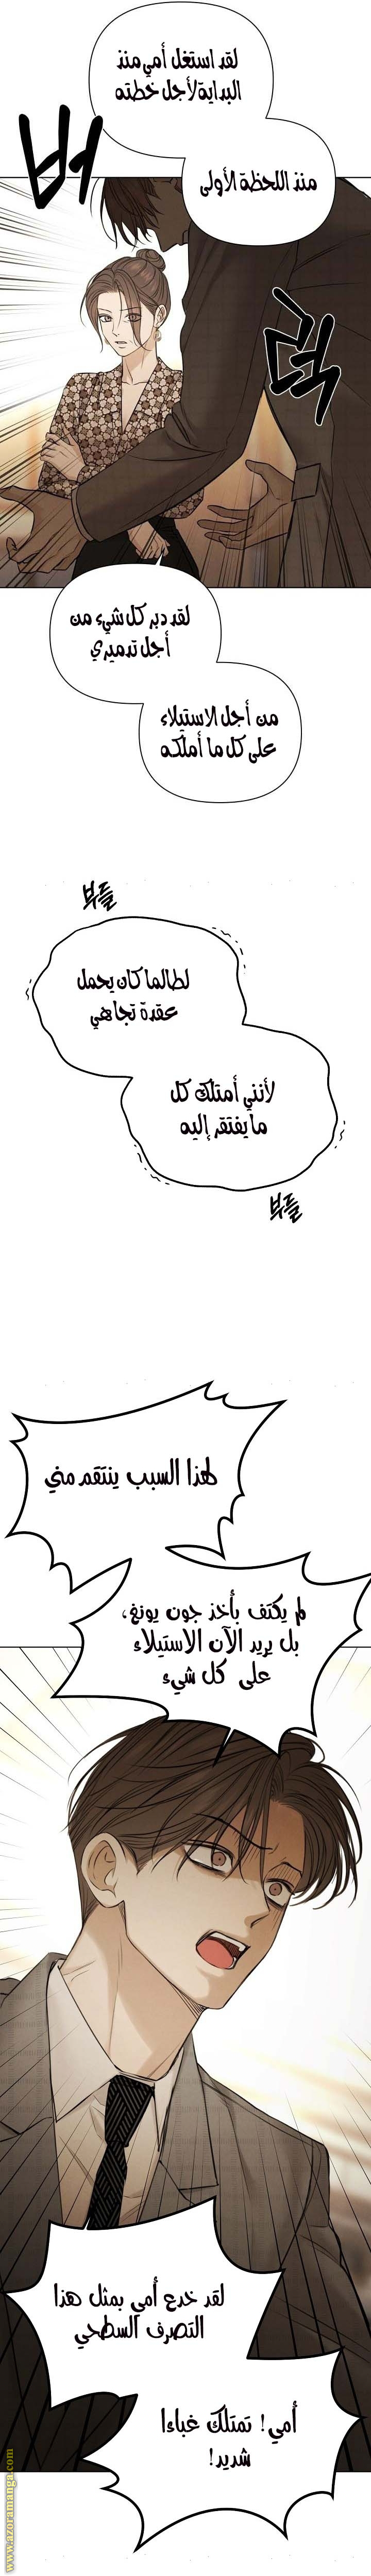 لقد استغل أمي منذ
البداية لأجل خطته
منذ اللحظة الأولى
버
럭
لقد دبر كل شيء من
أجل تدميري
من أجل الاستيلاء
على كل ما أملكه
부들
لطالما كان يحمل
عقدة تجاهي
لأنني أمتلك كل
ما يفتقر إليه
부들
لهذا السبب ينتقم مني
لم يكتف بأخذ جون يونغ،
بل يريد الآن الاستيلاء
على كل شيء
لقد خدع أمي بمثل هذا
التصرف السطحي
أمي! تمتلك غباءا
شديد!
www.azoramanga.com